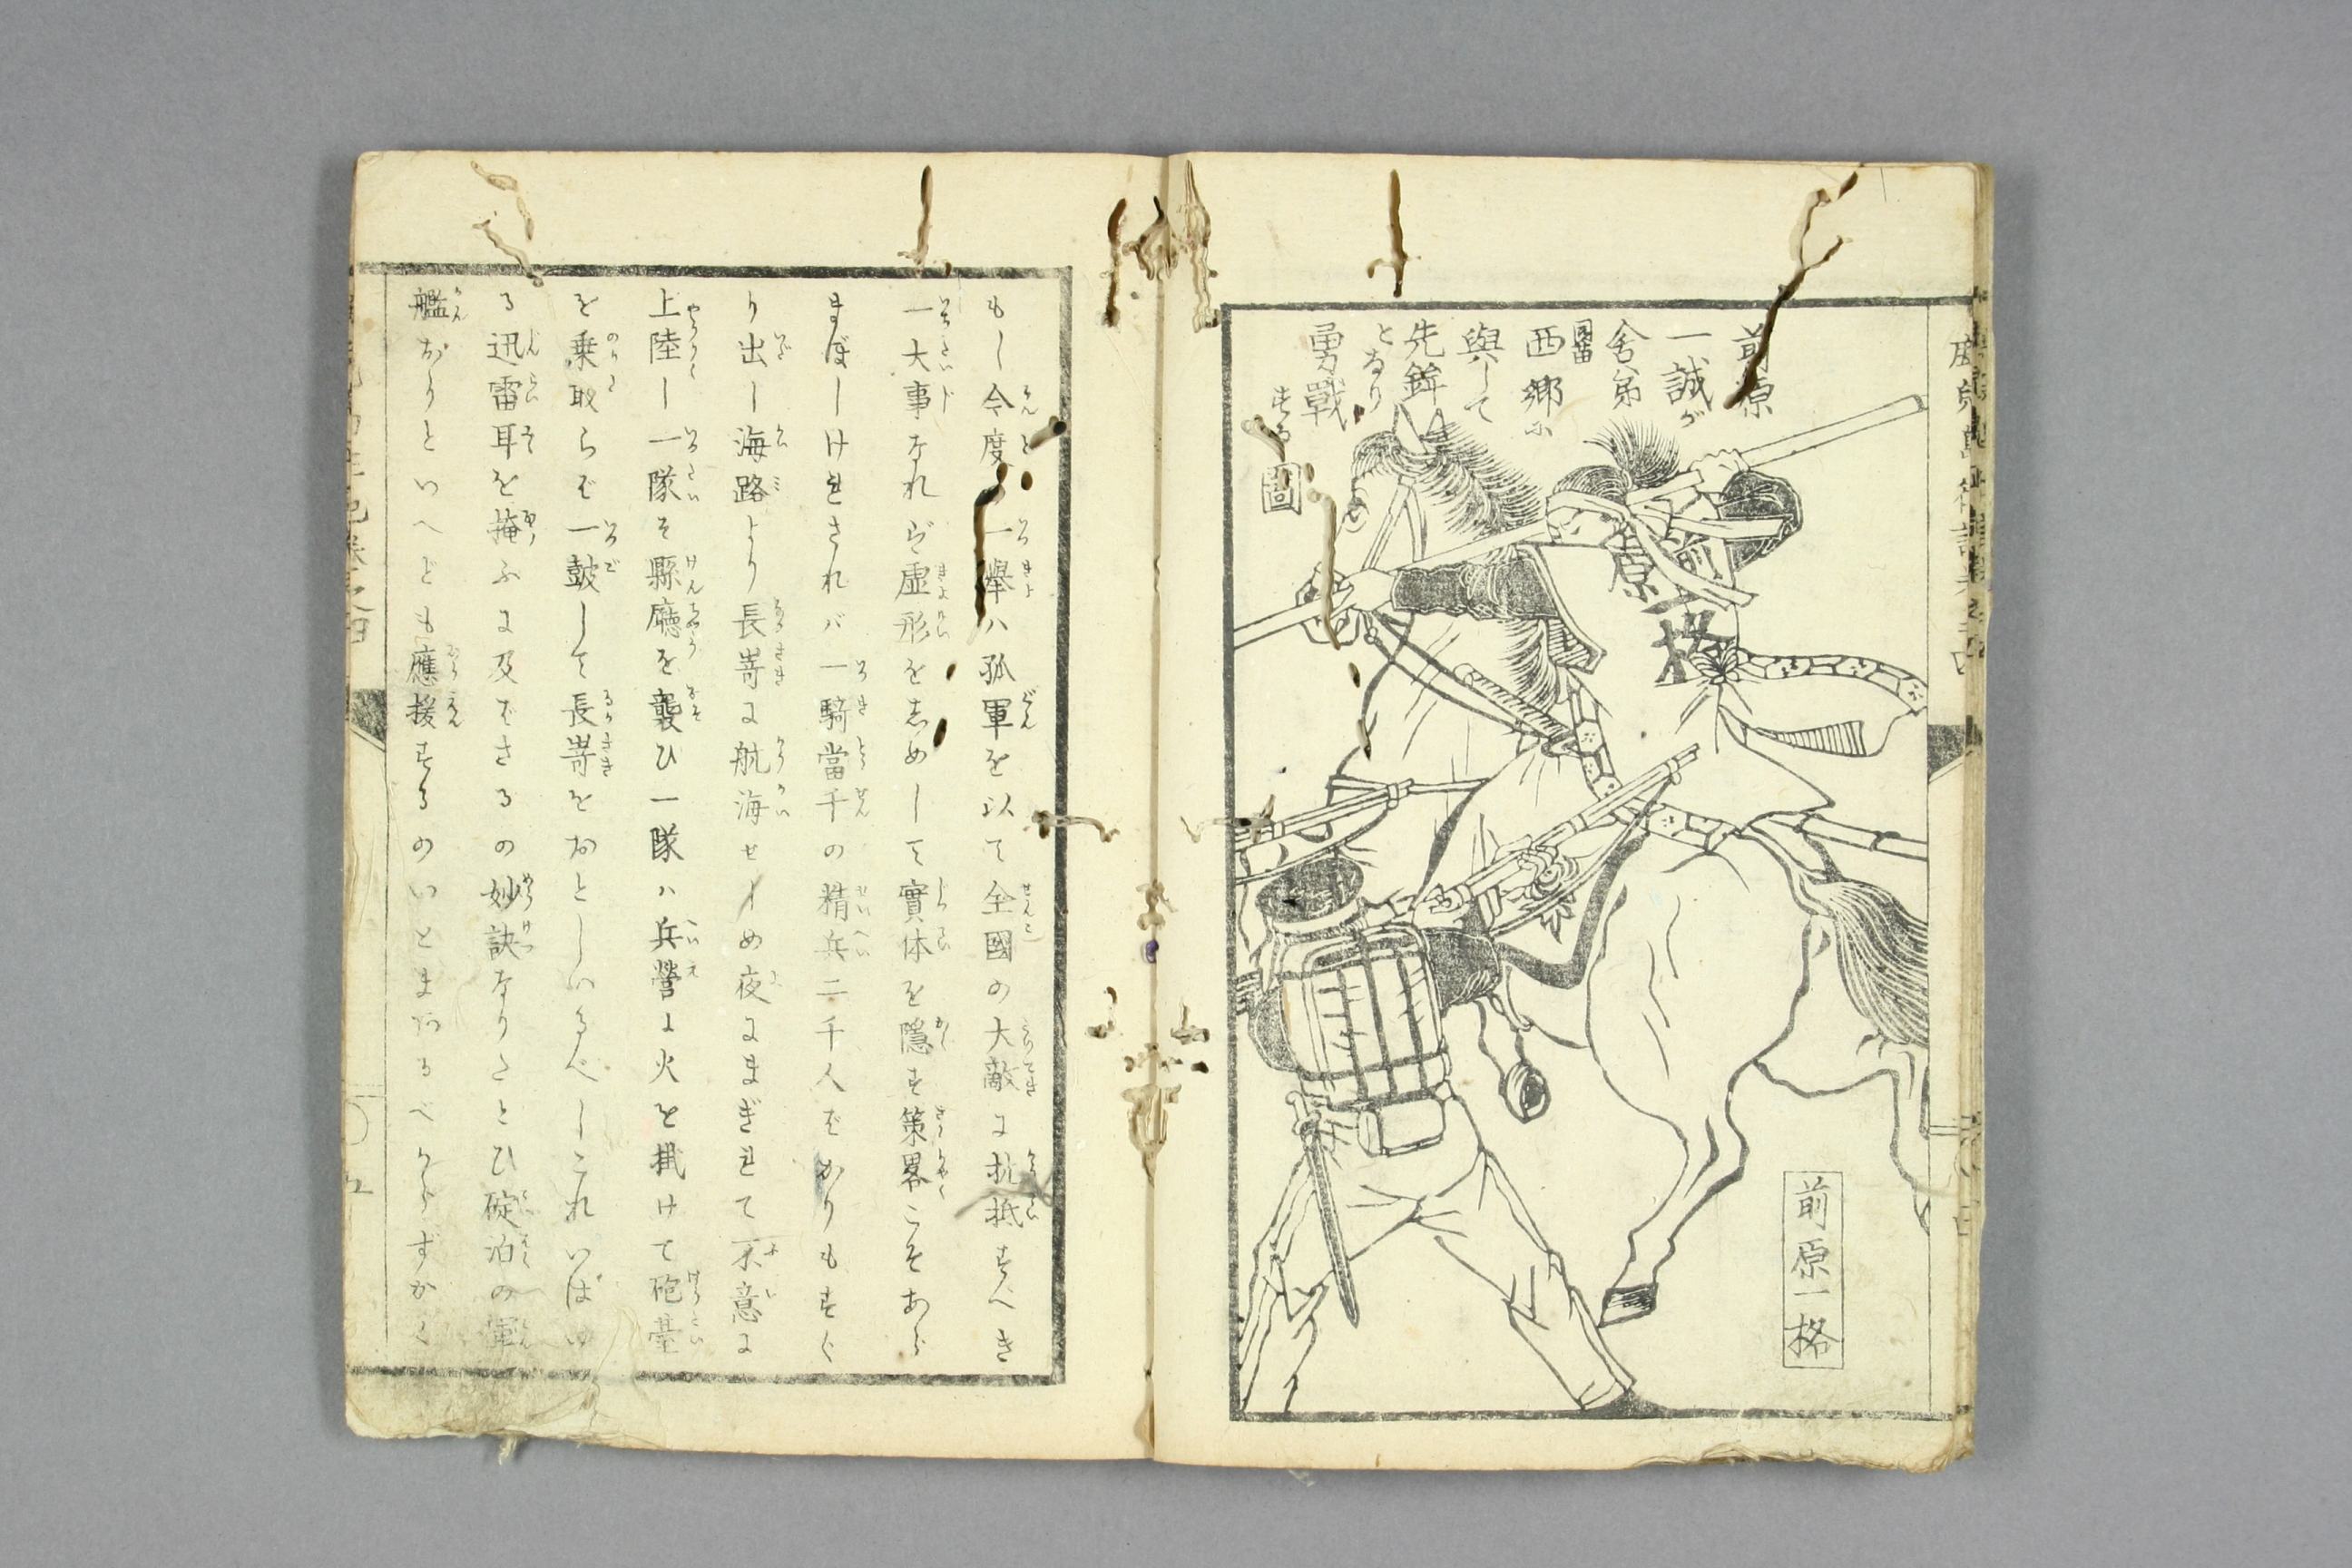 前原
一誠が
舎弟
西郷に
與して
先鉾
となり
勇戰
する
圖
前原
一格
前原一格
もし今度の一擧ハ孤軍を以て全國の大敵に抗抵すべき
一大事なれば虚形を志めして實体を隱す策畧こそあら
まほしけれされバ一騎當千の精兵二千人ばかりもすぐ
り出し海路より長嵜に航海せしめ夜にまぎれて不意に
上陸し一隊は縣廳を襲ひ一隊ハ兵營に火を掛けて砲臺
を乗取らば一鼓して長嵜をおとしいるべしこれいはゆ
る迅雷耳を掩ふに及ばさるの妙訣なりたとひ碇泊の軍
艦ありといへども應援するのいとまあるべからずかく